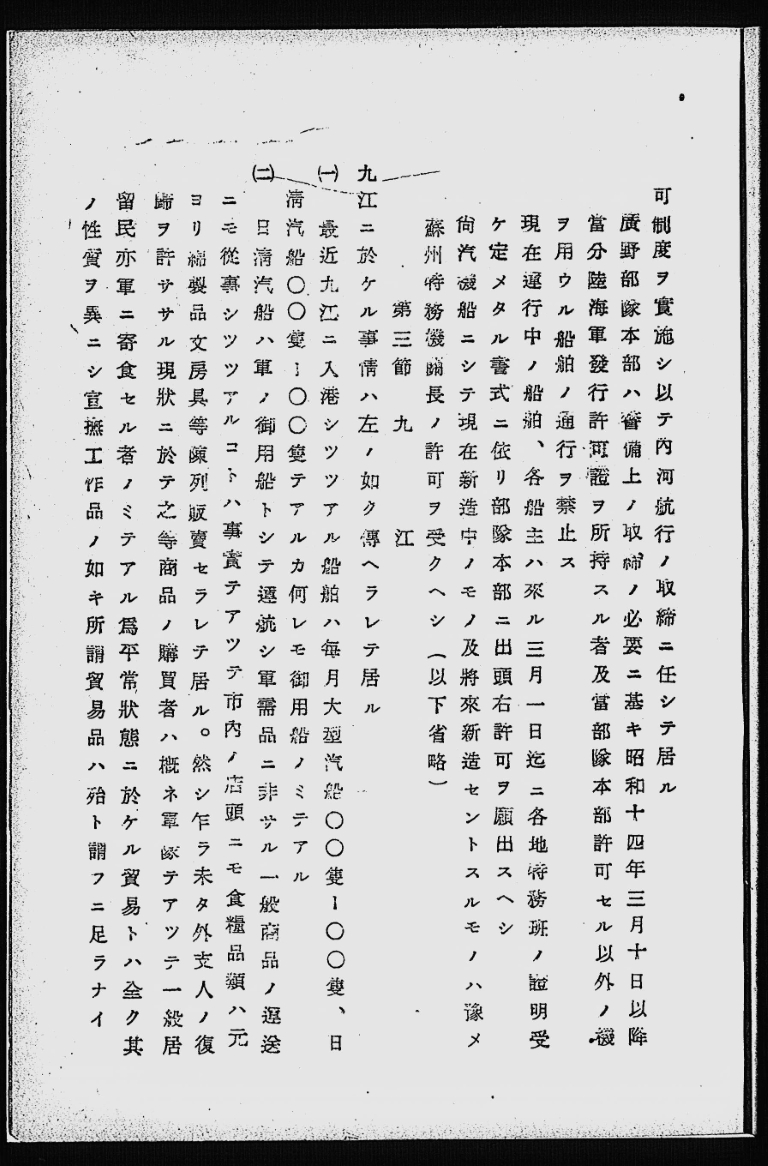 可制度ヲ實施シ以テ內河航行ノ取締ニ任シテ居ル
廣野部隊本部ハ警備上ノ取締ノ必要ニ基キ昭和十四年三月十日以降
當分陸海軍發行許可證ヲ所持スル者及當部隊本部許可セル以外ノ機
ヲ用ウル船舶ノ通行ヲ禁止ス
現在運行中ノ船舶、各船主ハ來ル三月一日迄ニ各地特務班ノ證明受
ケ定メタル書式ニ依リ部隊本部ニ出頭右許可ヲ願出スヘシ
尙汽機船ニシテ現在新造中ノモノ及將來新造セントスルモノハ豫メ
蘇州特務機關長ノ許可ヲ受クヘシ(以下省略)
第三節 九江
九江ニ於ケル事情ハ左ノ如ク傳ヘラレテ居ル
㈠ 最近九江ニ入港シツツアル船舶ハ每月大型汽船〇〇隻ー〇〇隻、日
淸汽船〇〇隻ー〇〇隻テアルカ何レモ御用船ノミテアル
㈡ 日淸汽船ハ軍ノ御用船トシテ運航シ軍需品ニ非サル一般商品ノ運送
ニモ從事シツツアルコトハ事實テアツテ市內ノ店頭ニモ食糧品類ハ元
ヨリ綿製品文房具等陳列販賣セラレテ居ル。然シ乍ラ未タ外支人ノ復
歸ヲ許ササル現狀ニ於テ之等商品ノ購買者ハ槪ネ軍隊テアツテ一般居
留民亦軍ニ寄食セル者ノミテアル爲平常狀態ニ於ケル貿易トハ全ク其
ノ性質ヲ異ニシ宣撫工作品ノ如キ所謂貿易品ハ殆ト謂フニ足ラナイ